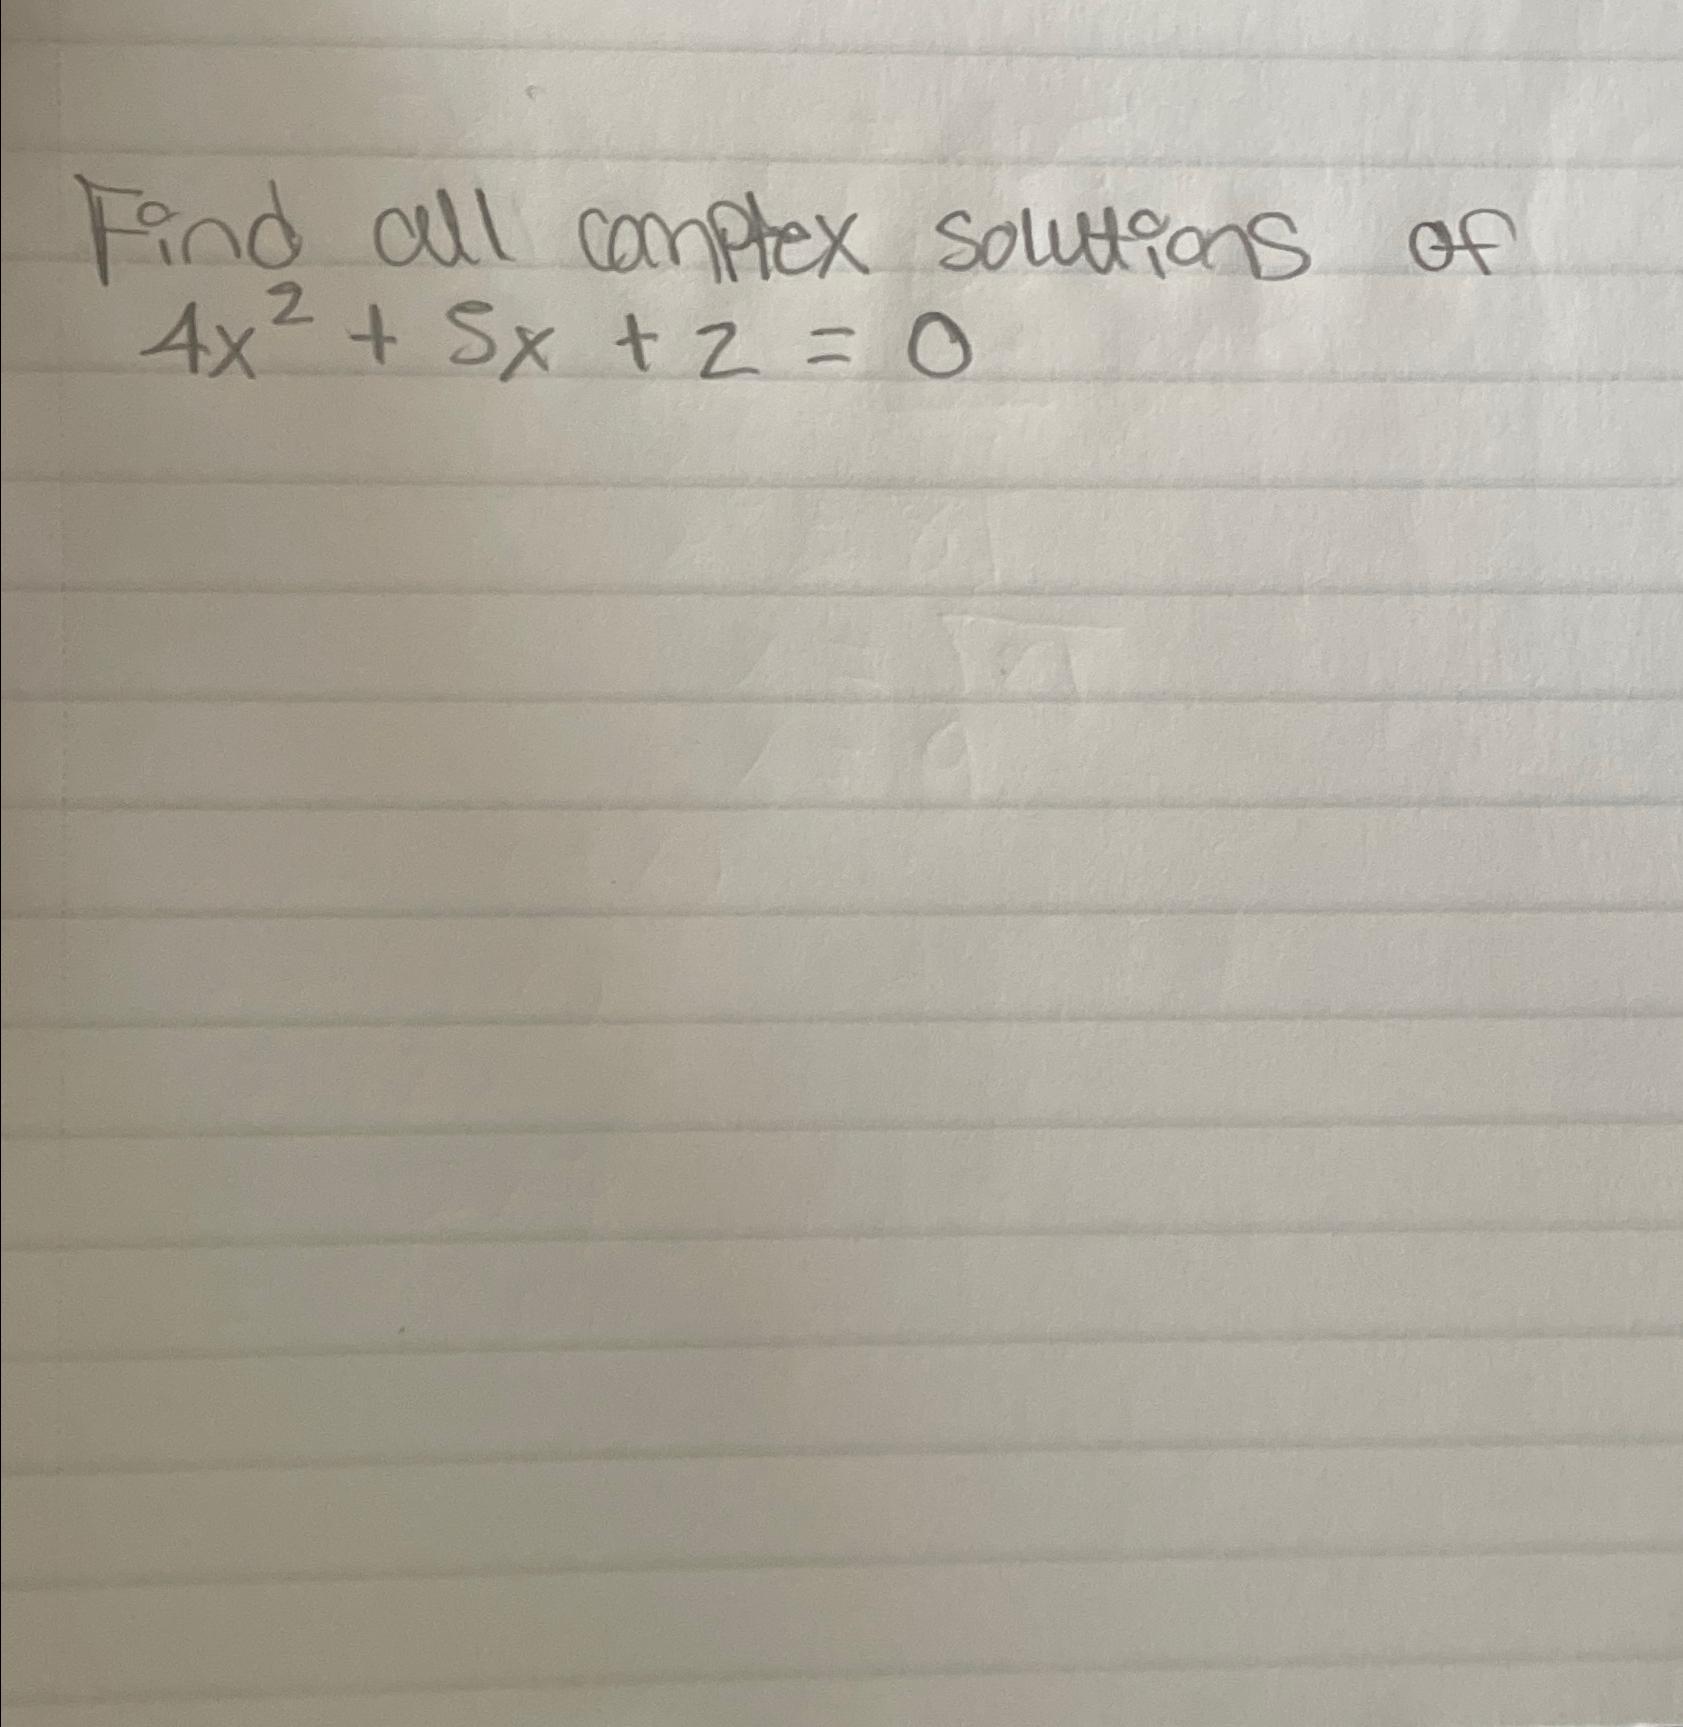 Find all complex solutions of
4x² + 5x + 2 = 0